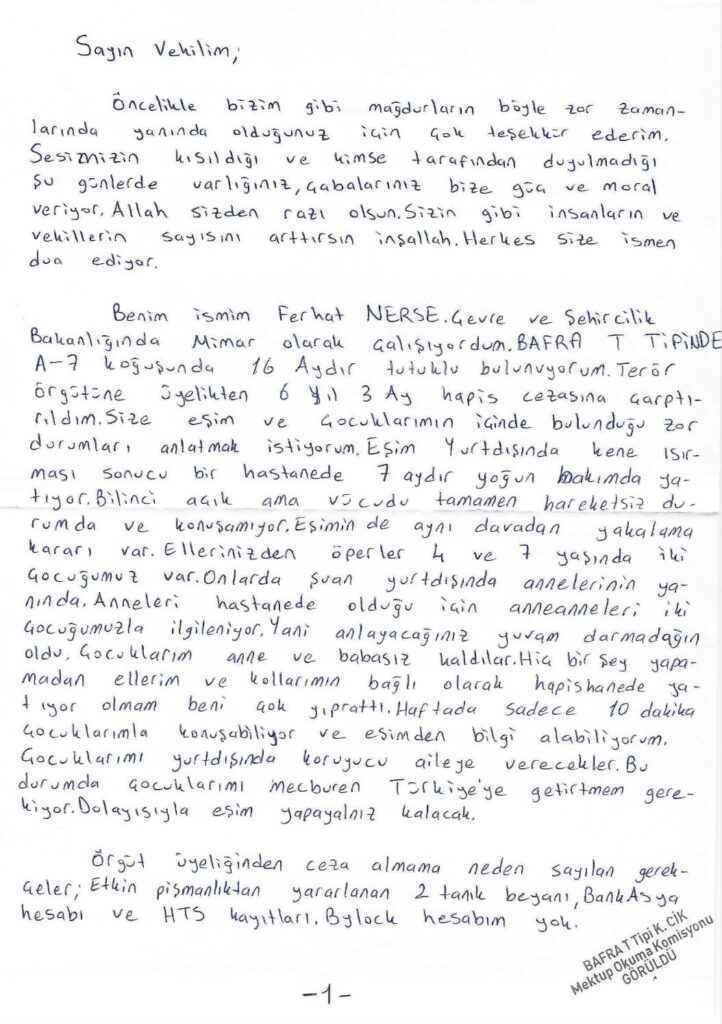 Sayın Vekilim;
Öncelikle bizim gibi mağdurların böyle zor zaman-
larında yanında olduğunuz için çok teşekkür ederim.
Sesimizin kısıldığı ve kimse tarafından duyulmadığı
şu günlerde varlığınız, çabalarınız bize güç ve moral
veriyor. Allah sizden razı olsun. Sizin gibi insanların ve
vekillerin sayısını arttırsın inşallah. Herkes size ismen
dua ediyor.
Benim ismim Ferhat NERSE. Çevre ve Şehircilik
Bakanlığında Mimar olarak çalışıyordum. BAFRA T TİPİNDE
A-7 koğuşunda 16 Aydır tutuklu bulunuyorum. Terör
örgütüne üyelikten 6 Yıl 3 Ay hapis cezasına çarptı-
rıldım. Size eşim ve çocuklarımın içinde bulunduğu zor
durumları anlatmak istiyorum. Eşim Yurtdışında kene ısır-
ması sonucu bir hastanede 7 aydır yoğun bakımda ya-
tıyor. Bilinci açık ama vücudu tamamen hareketsiz du-
rumda ve konuşamıyor. Eşimin de aynı davadan yakalama
kararı var. Ellerinizden öperler 4 ve 7 yaşında iki
çocuğumuz var. Onlarda şuan yurtdışında annelerinin ya-
nında. Anneleri hastanede olduğu için anneanneleri iki
çocuğumuzla ilgileniyor. Yani anlayacağınız yuvam darmadağın
oldu. Çocuklarım anne ve babasız kaldılar. Hiç bir şey yapa-
madan ellerim ve kollarımın bağlı olarak hapishanede ya-
tıyor olmam beni çok yıprattı. Haftada sadece 10 dakika
çocuklarımla konuşabiliyor ve eşimden bilgi alabiliyorum.
Çocuklarımı yurtdışında koruyucu aileye verecekler. Bu
durumda çocuklarımı mecburen Türkiye'ye getirtmem gere-
kiyor. Dolayısıyla eşim yapayalnız kalacak.
Örgüt üyeliğinden ceza almama neden sayılan gerek-
çeler; Etkin pişmanlıktan yararlanan 2 tanık beyanı, BankAsya
hesabı ve HTS kayıtları. Bylock hesabım yok.
BAFRA T Tipi K. CİK
Mektup Okuma Komisyonu
GÖRÜLDÜ
-1-